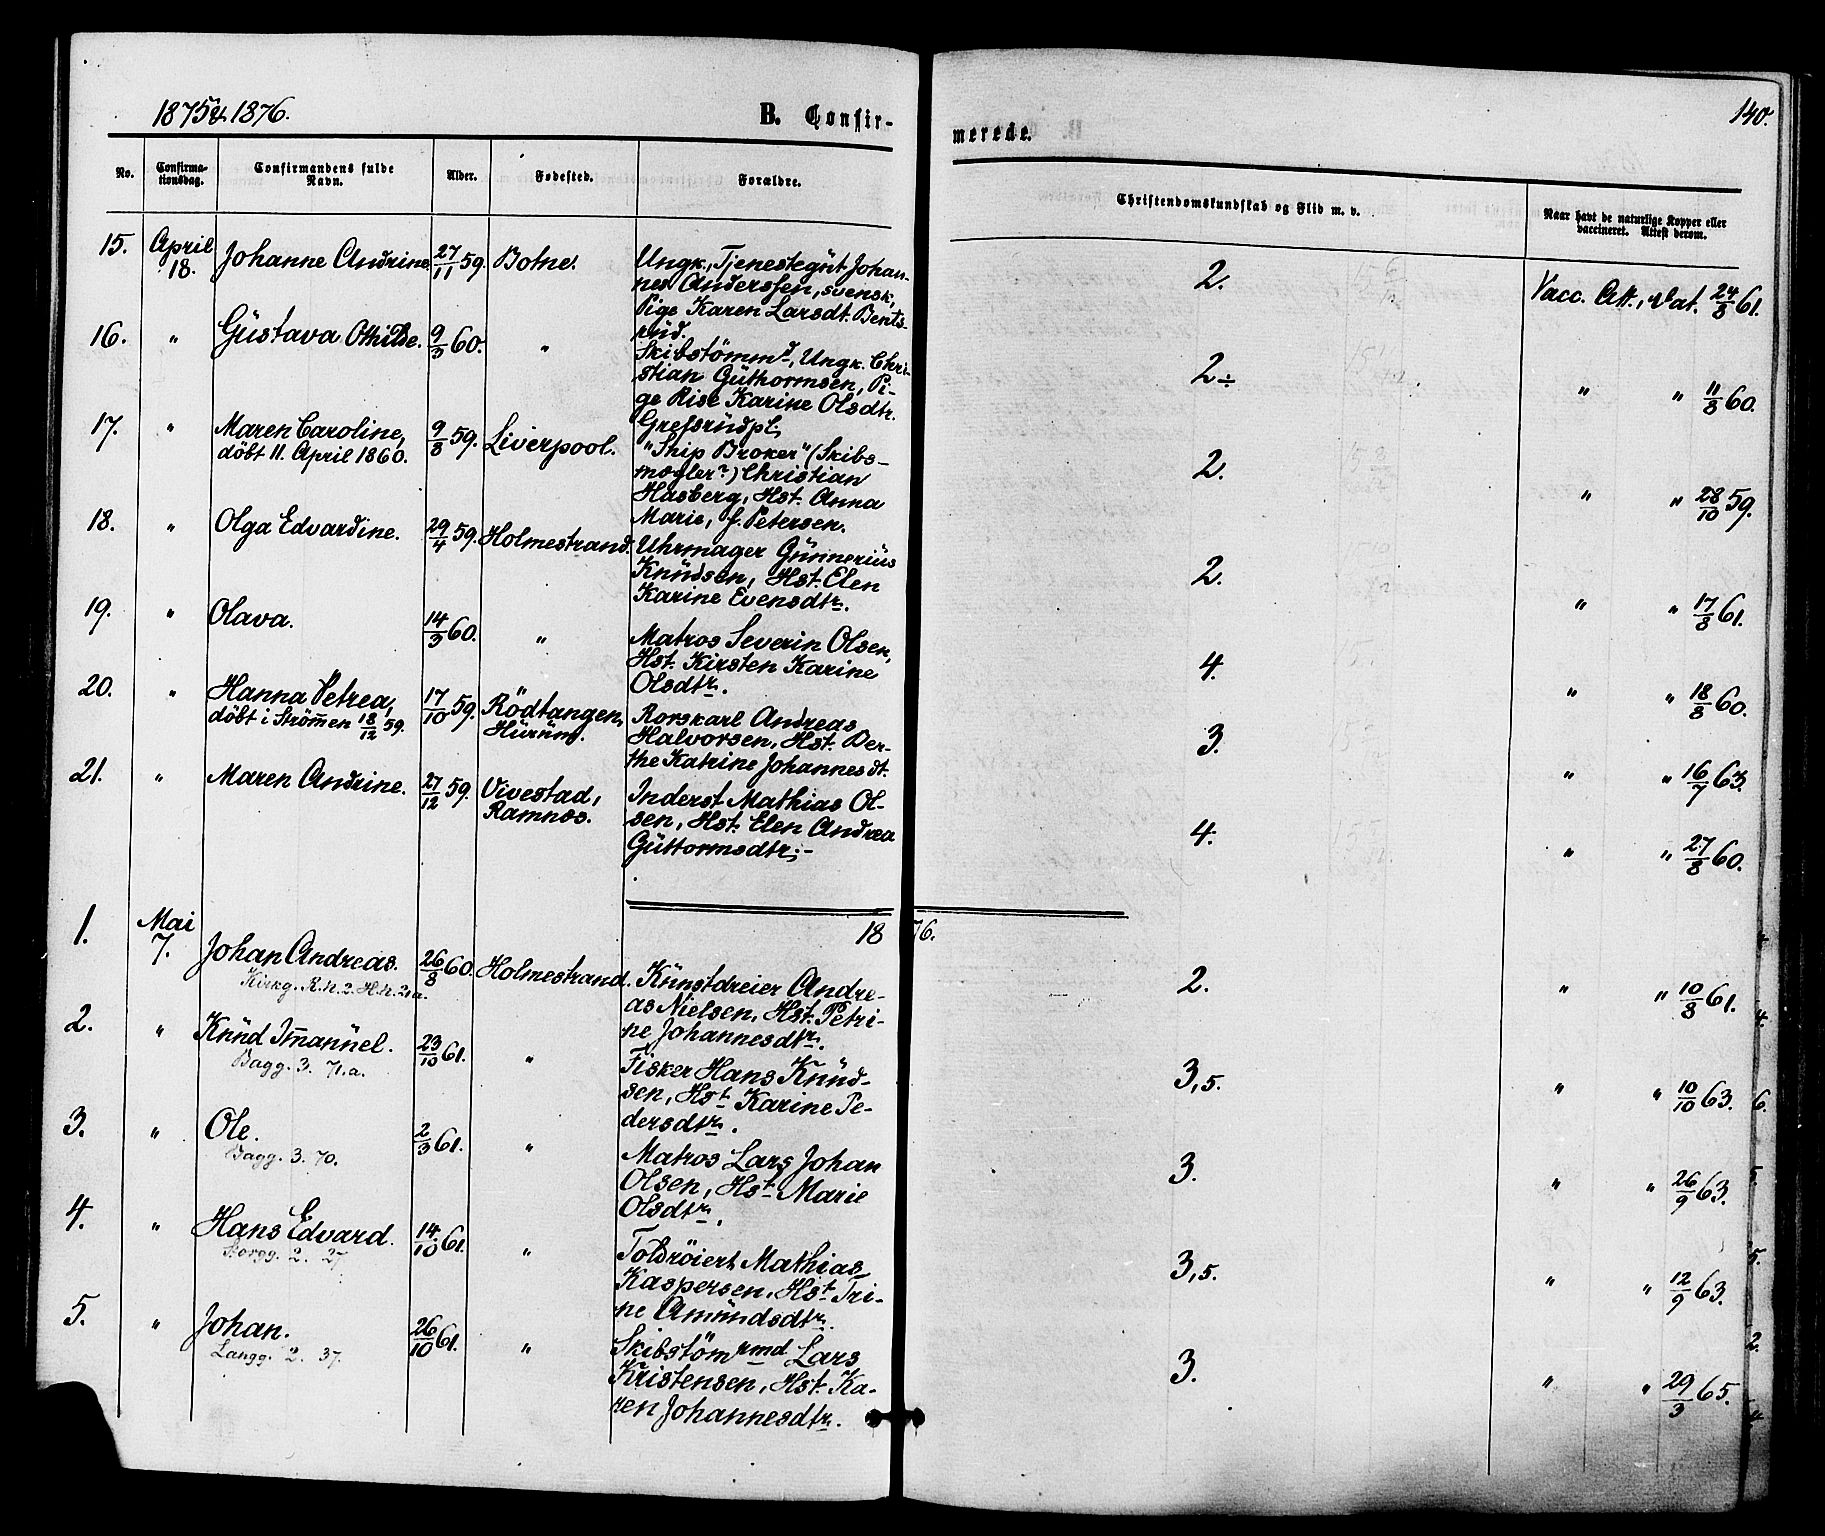 1875 & 1876.
B. Confir-
merede.
140.
No.
Confirma-
tionsdag.
Confirmandens fulde
Navn.
Alder.
Fødested.
Forældre.
Christendomskundskab og Flid m. v.
Naar havt de naturlige Kopper eller
vaccineret. Attest derom.
15. April 18. Johanne Andrine. 27/11 59. Botne.
Ungk., Tjenestegüt Johan-
nes Anderssen, svensk,
Pige Karen Larsdt. Bents-
rüd.
2. Vacc. Att., dat. 24/8 61.
16. " Güstava Othilde. 9/3 60. "
Skibstömmd, Ungk. Chri-
stian Güthormsen, Pi-
ge Rise Karine Olsdtr.
Grefsrüdpl.
2÷ " " 11/8 60.
17. " Maren Caroline,
döbt 11. April 1860.
9/8 59. Liverpool.
"Ship Broker" (Skibs-
mægler?) Christian
Hasberg, Hst. Anna
Marie, f. Petersen.
2. " " 28/10 59.
18. " Olga Edvardine. 29/4 59. Holmestrand.
Uhrmager Günnerius
Knüdsen, Hst. Elen
Karine Evensdtr.
2. " " 17/8 61.
19. " Olava. 14/3 60. "
Matros Severin Olsen,
Hst. Kirsten Karine
Olsdtr.
4. " " 18/8 60.
20. " Hanna Petrea,
döbt i Strömmen 18/12 59.
17/10 59. Rödtangen,
Hürüm.
Rorskarl Andreas
Halvorsen, Hst. Ber-
the Katrine Johannesdt.
3. " " 16/7 63.
21. " Maren Andrine. 27/12 59. Vivestad,
Ramnæs.
Inderst Mathias Ol-
sen, Hst. Elen Andrea
Güttormsdtr.-
4. " " 27/8 60.
1876.
1. Mai 7. Johan Andreas.
Kirkg. R. n. 2. H. n. 21a.
26/8 60. Holmestrand.
Künstdreier Andre-
as Nielsen, Hst. Petri-
ne Johannesdtr.
2. " " 10/8 61.
2. " Knüd Immanüel.
Bagg. 3. 71.a.
23/10 61. "
Fisker Hans Knüd-
sen, Hst. Karine Pe-
dersdtr.
3,5. " " 10/10 63.
3. " Ole.
Bagg. 3. 70.
2/3 61. "
Matros Lars Johan
Olsen, Hst. Marie
Olsdtr.
3. " " 26/9 63.
4. " Hans Edvard.
2. 27
14/10 61. "
Toldröiert Mathias
Kaspersen, Hst. Tri-
ne Amündsdtr.
3,5. " " 12/9 63.
5. " Johan.
Langg. 2. 37.
26/10 61. "
Skibstömrmd Lars
Kristensen, Hst. Ka-
ren Johannesdtr.
3. " " 29/3 65.